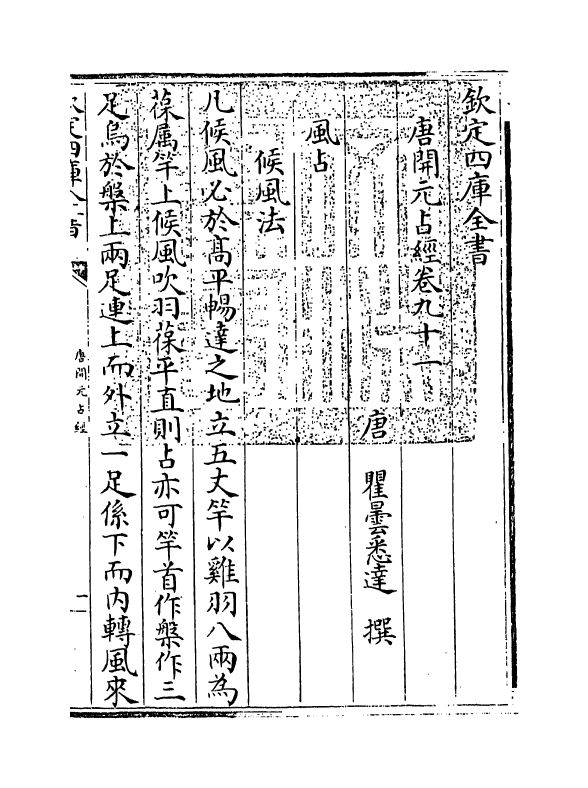 欽定四庫全書
唐開元占經卷九十一
唐 瞿曇悉達 撰
風占
候風法
凡候風必於髙平暢達之地立五丈竿以雞羽八兩為
葆属竿上候風吹羽葆平直則占亦可竿首作盤作三
足烏於盤上兩足連上而外立一足係下而内轉風來
欽定四庫全書
唐開元占經